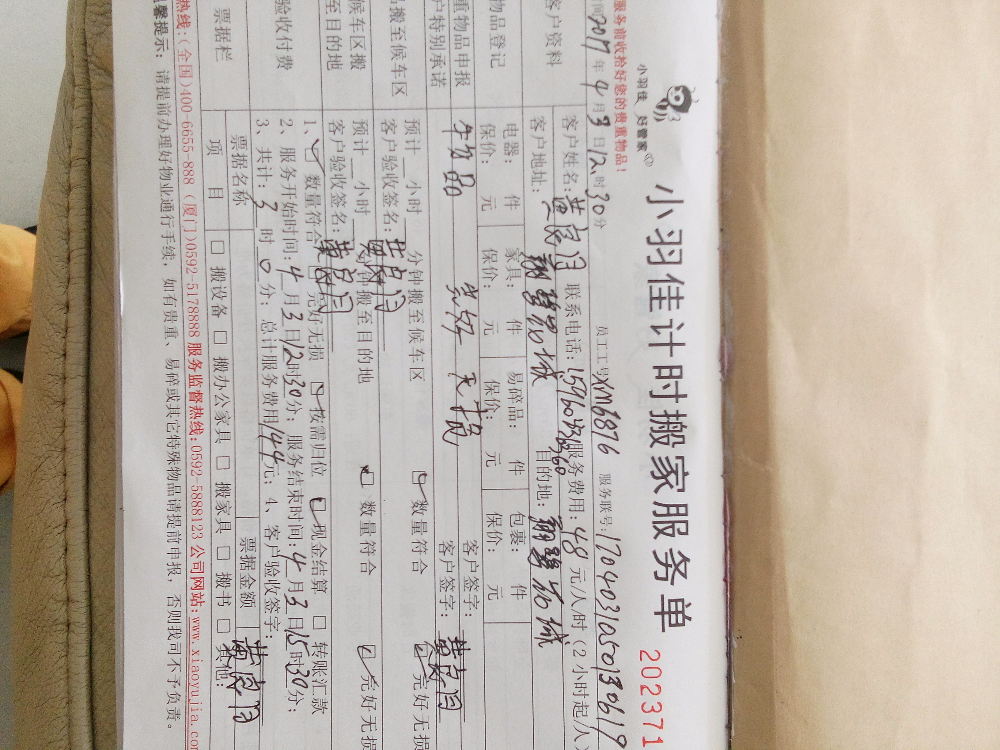 小羽佳 好管家
小羽佳计时搬家服务单
202371
服务前收拾好您的贵重物品！
员工工号XM6876 服务联号:
间2017年4月3日12时30分
客户资料
客户姓名: 联系电话: 服务费用: 48元/人/时(2小时起/人)
客户地址: 目的地:
物品登记
电器: 件 家具: 件 易碎品: 件 包裹: 件
保价: 元 保价: 元 保价: 元 保价: 元
重物品申报
客户签字:
户特别承诺
客户签字:
品搬至候车区
预计 小时 分钟搬至候车区 数量符合 完好无损
客户验收签名:
候车区搬
至目的地
预计 小时 分钟搬至目的地 数量符合 完好无损
客户验收签名:
验收付费
1、 数量符合 完好无损 按需归位 现金结算 转账汇款
2、服务开始时间:4月3日12时30分; 服务结束时间:4月3日15时30分;
3、共计:3时0分; 总计服务费用144元; 4、客户验收签字:
票据栏
票据名称 票据金额
项目 搬设备 搬办公家具 搬家具 搬书 其他:
热线:(全国)400-6655-888 (厦门)0592-5178888 服务监督热线:0592-5888123 公司网站:www.xiaoyujia.co
馨提示: 请提前办理好物业通行手续, 如有贵重、易碎或其它特殊物品请提前申报, 否则我司不予负责。